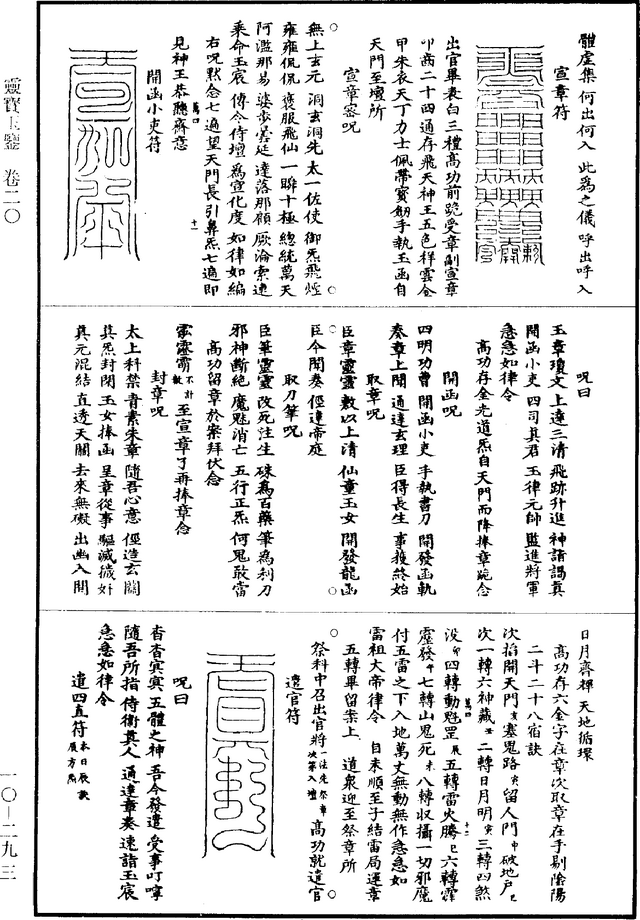 體虛集 何出何入 此爲之儀 呼出呼入
宣章符
出官畢表白三禮高功前跪受章副宣章
叩齒二十四通存飛天神王五色祥雲金
甲朱衣天丁力士佩帶寶劒手執玉函自
天門至壇所
宣章密呪
無上玄元 洞玄洞先 太一佐使 御炁飛煙
雍雍侃侃 褒服飛仙 一睟十極 總統萬天
阿濫那易 婆步曇延 達落那顧 厥淪索連
乘命玉宸 傳令侍壇 爲宣化度 如律如編
右呪默念七遍望天門長引鼻炁七過即
見神王恭聽齊意
開函小吏符
呪曰
玉章瓊文 上達三清 飛跡升進 神請謁真
開函小吏 四司真君 玉律元帥 監進將軍
急急如律令
高功存金光道炁自天門而降捧章跪念
開函呪
四明功曹 開函小吏 手執書刀 開發函軌
奏章上聞 通達玄理 臣得長生 事獲終始
取章呪
臣章靈靈 敷以上清 仙童玉女 開發龍函
臣今開奏 徑達帝庭
取刀筆呪
臣筆靈靈 改死注生 硃爲百藥 筆爲利刀
邪神斷絕 魔魅消亡 五行正炁 何鬼敢當
高功留章於案拜伏念
不計數至宣章了再捧章念
封章呪
太上科禁 青素朱章 隨吾心意 徑造玄闕
真炁封閉 玉女捧函 呈章從事 驅滅穢奸
真元混結 直透天關 去來無礙 出幽入開
日月齊輝 天地循環
高功存六金字在章次取章在手剔陰陽
二斗二十八宿訣
次掐開天門亥塞鬼路寅留人門申破地戶巳
次一轉六神藏丑二轉日月明寅三轉四煞
没卯四轉動魁罡辰五轉雷火騰巳六轉霹
靂發午七轉山鬼死未八轉收攝一切邪魔
付五雷之下入地萬丈無動無作急急如
雷祖大帝律令 自未順至子結雷局運章
五轉畢留案上 道衆迎至祭章所
祭科中召出官將一法先祭章次第入壇高功就遣官
遣官符
呪曰
杳杳冥冥 五體之神 吾今發遣 受事叮嚀
隨吾所指 侍衛真人 通達章奏 速詣玉宸
急急如律令
遣四直符本日辰訣直方炁
靈寶玉鑒 卷二〇
一〇—二九三